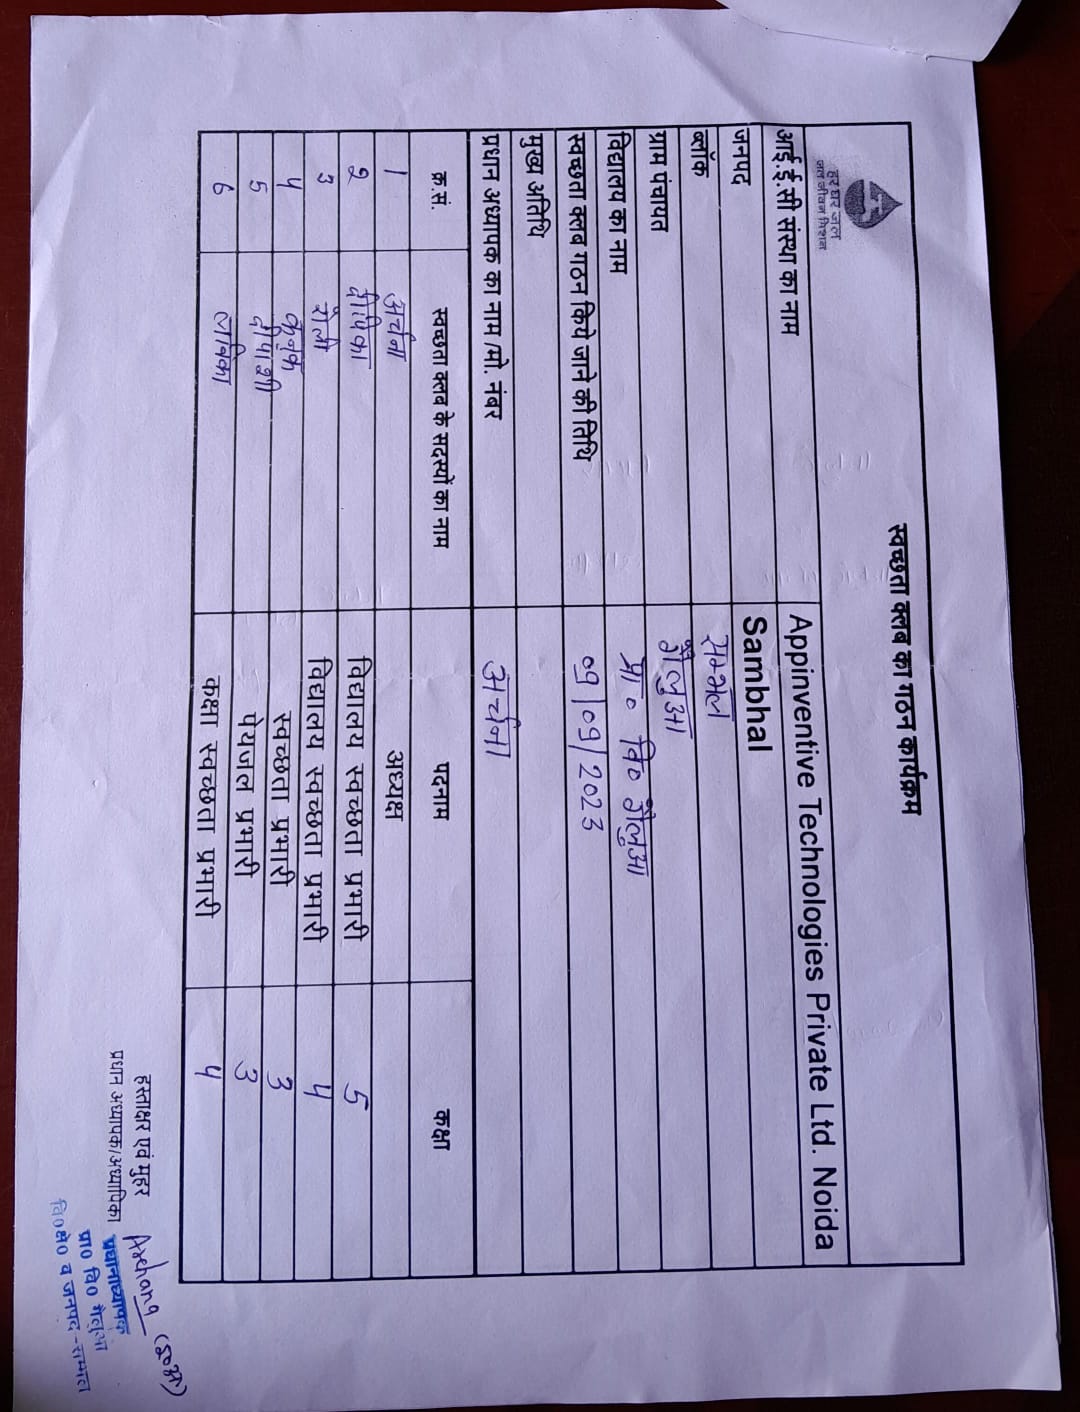 हर घर जल
जल जीवन मिशन
स्वच्छता क्लब का गठन कार्यक्रम
आई.ई.सी संस्था का नाम Appinventive Technologies Private Ltd. Noida
जनपद Sambhal
ब्लॉक सम्भल
ग्राम पंचायत भैलुआ
विद्यालय का नाम प्रा० वि० भैलुआ
स्वच्छता क्लब गठन किये जाने की तिथि 09/09/2023
मुख्य अतिथि
प्रधान अध्यापक का नाम /मो. नंबर अर्चना
क्र.सं. स्वच्छता क्लब के सदस्यों का नाम पदनाम कक्षा
1 अर्चना अध्यक्ष
2 दीपिका विद्यालय स्वच्छता प्रभारी 5
3 रोली विद्यालय स्वच्छता प्रभारी 4
4 स्वच्छता प्रभारी 3
5 दीपांशी पेयजल प्रभारी 3
6 कक्षा स्वच्छता प्रभारी 4
हस्ताक्षर एवं मुहर Archana (इ०अ०)
प्रधान अध्यापक/अध्यापिका प्रधानाध्यापक
प्रा० वि० भैलुआ
वि०क्षे० व जनपद-सम्भल